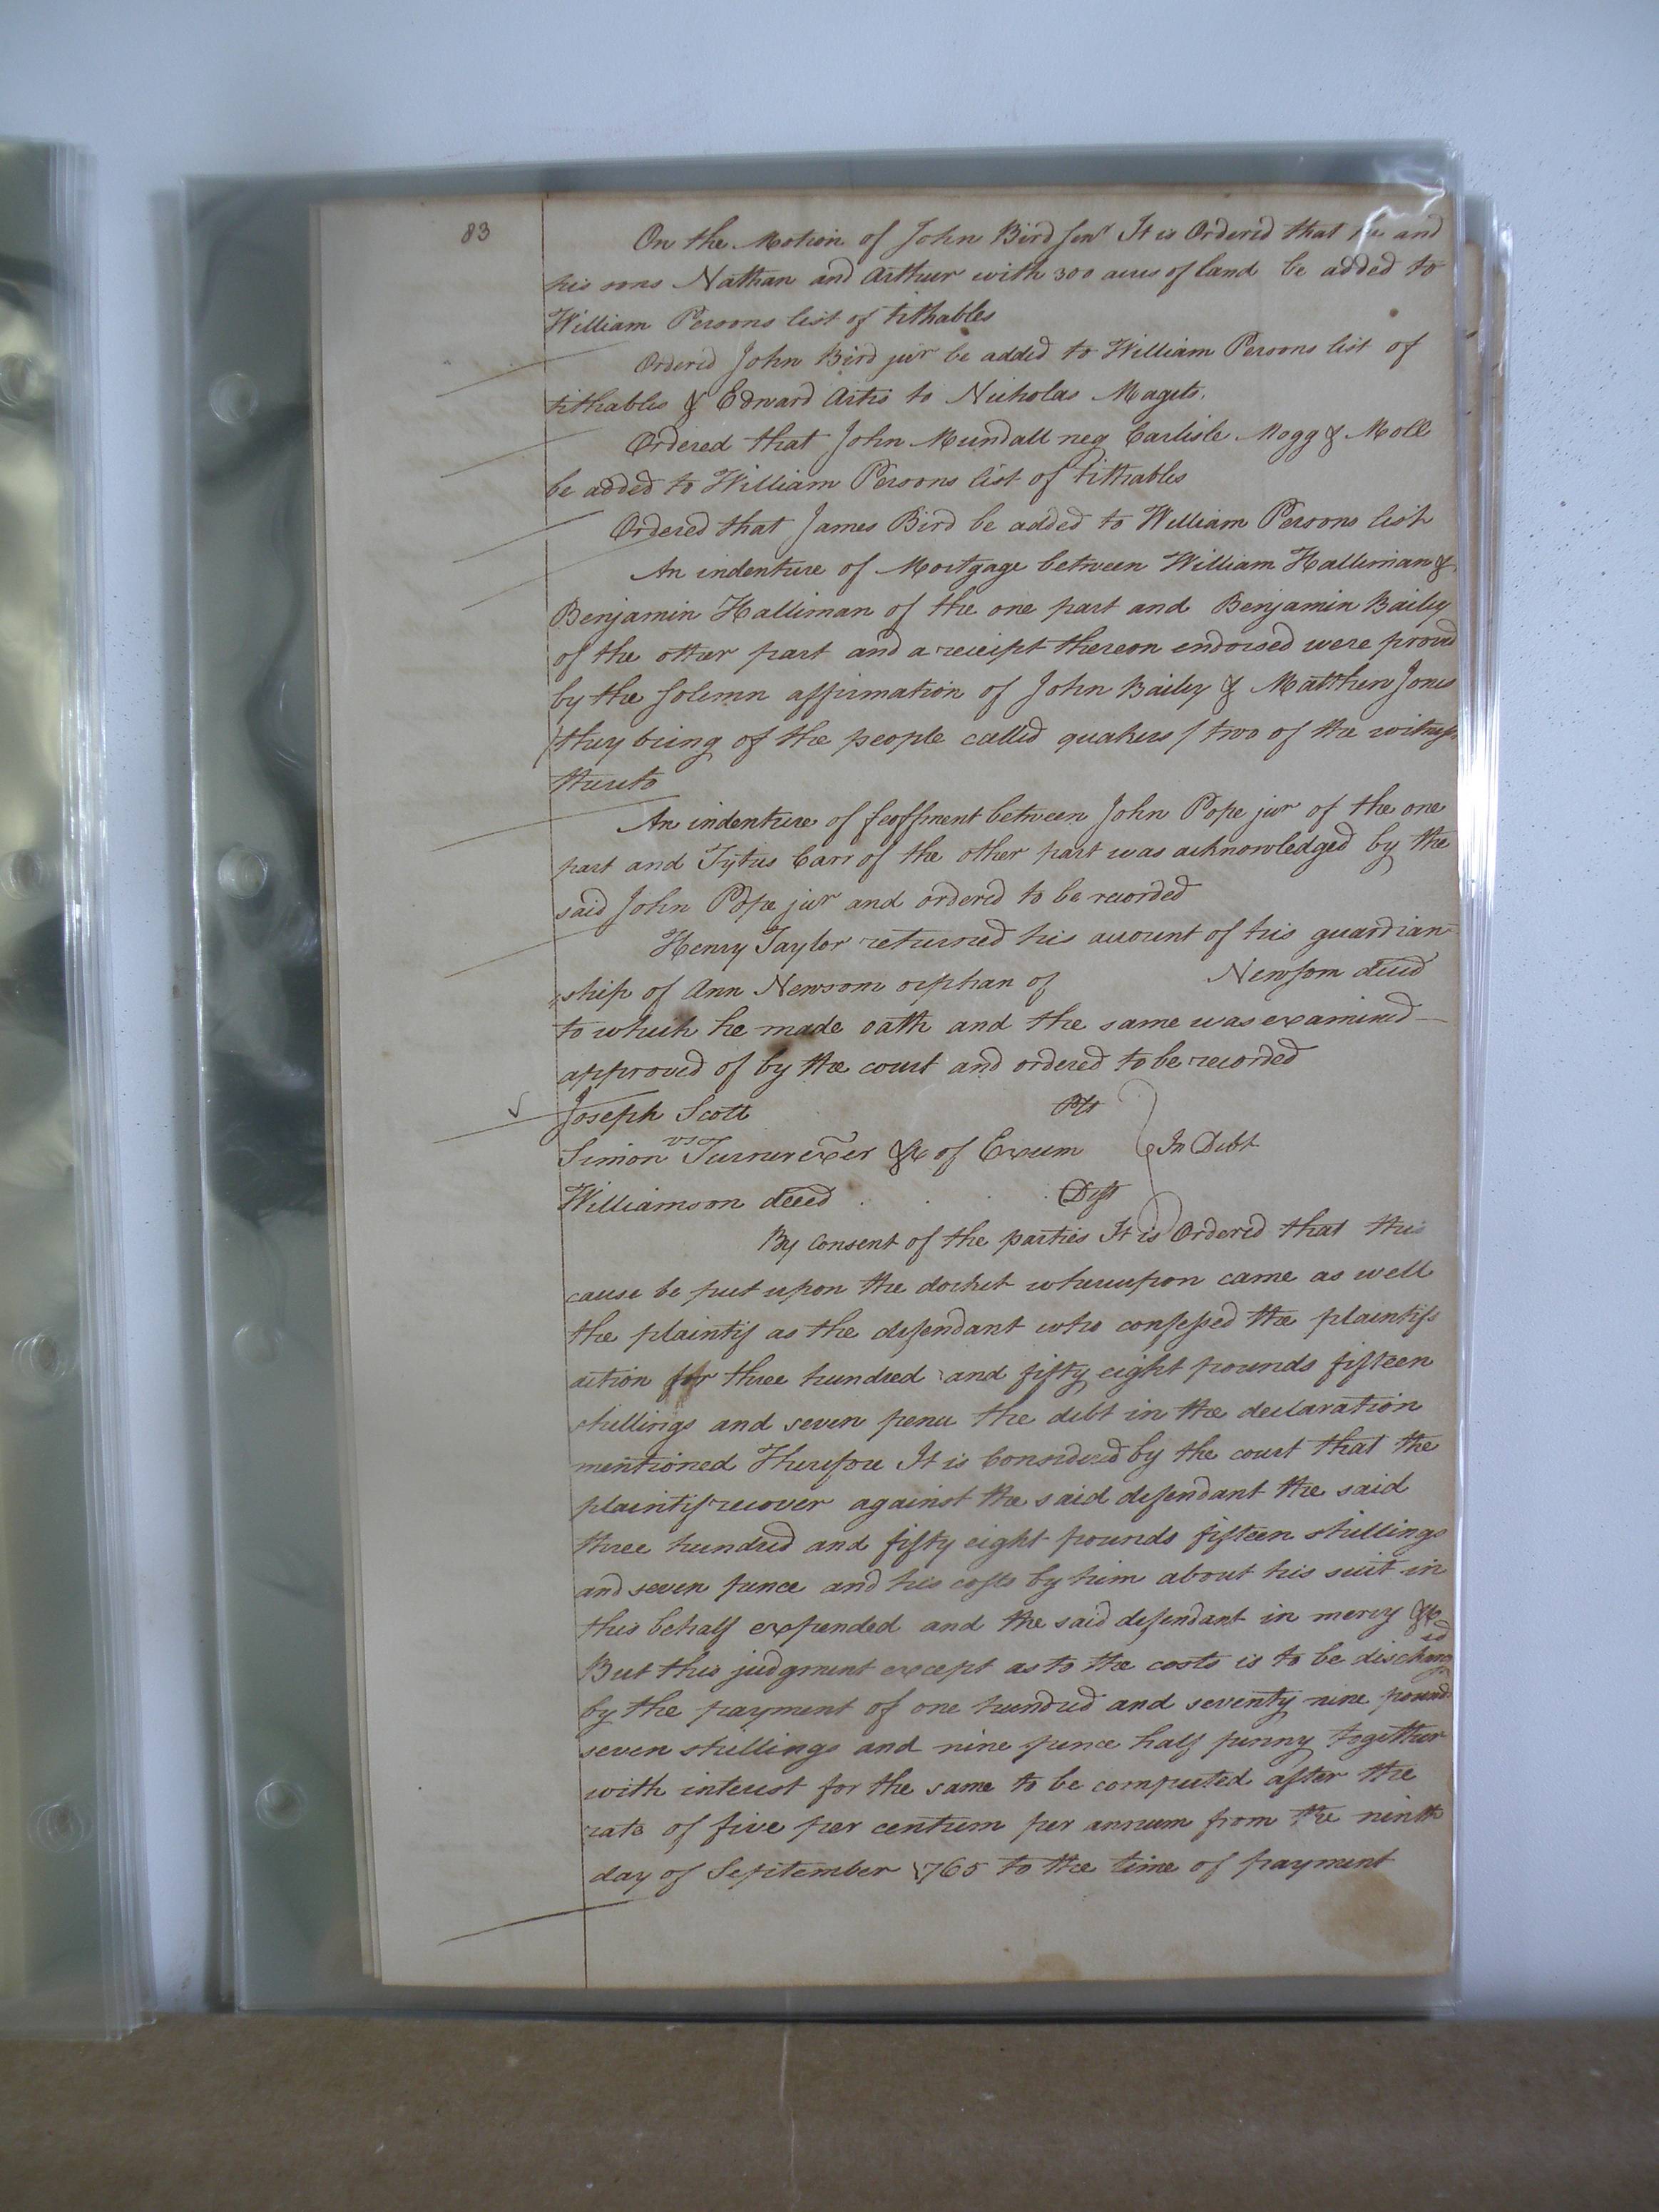 83
On the Motion of John Bird Senr It is Ordered that he and
his sons Nathan and Arthur with 300 acres of land be added to
William Persons list of tithables
Ordered John Bird jur be added to William Persons list of
tithables & Edward Artis to Nicholas Magets.
Ordered that John Mundall neg Carlisle Mogg & Moll
be added to William Persons list of tithables
Ordered that James Bird be added to William Persons list
An indenture of Mortgage between William Halliman &
Benjamin Halliman of the one part and Benjamin Bailey
of the other part and a receipt thereon endorsed were proved
by the solemn affirmation of John Bailey & Matthew Jones
/they being of the people called quakers/ two of the witnesses
thereto
An indenture of feoffment between John Pope jur of the one
part and Tytus Carr of the other part was acknowledged by the
said John Pope jur and ordered to be recorded
Henry Taylor returned his account of his guardian
ship of Ann Newsom orphan of Newsom deced
to which he made oath and the same was examined
approved of by the court and ordered to be recorded
Joseph Scott Plt
vs
Simon Turner exer &c of Exum In Debt
Williamson deced Deft
By Consent of the parties It is Ordered that this
cause be put upon the docket whereupon came as well
the plaintif as the defendant who confessed the plaintifs
action for three hundred and fifty eight pounds fifteen
shillings and seven pence the debt in the declaration
mentioned Therefore It is Considered by the court that the
plaintif recover against the said defendant the said
three hundred and fifty eight pounds fifteen shillings
and seven pence and his costs by him about his suit in
this behalf expended and the said defendant in mercy &c
But this judgment except as to the costs is to be discharged
by the payment of one hundred and seventy nine pounds
seven shillings and nine pence half penny together
with interest for the same to be computed after the
rate of five per centum per annum from the ninth
day of September 1765 to the time of payment